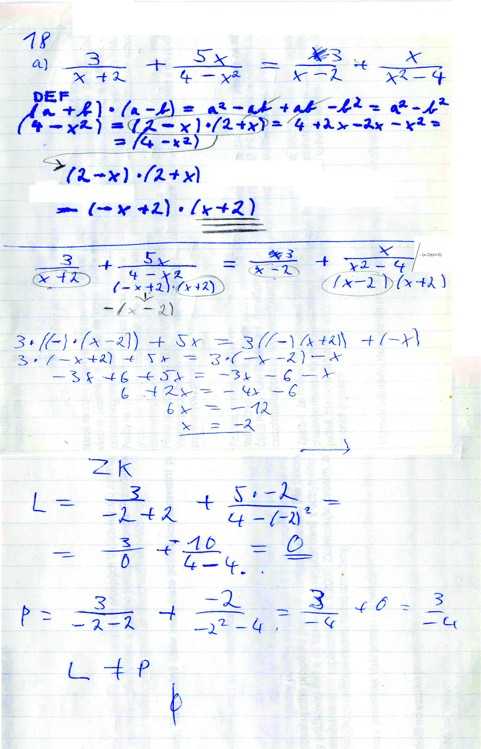 18
a) 3/(x+2) + 5x/(4-x²) = 3/(x-2) + x/(x²-4)
DEF
(a+b)·(a-b) = a²-ab+ab-b² = a²-b²
(4-x²) = (2-x)·(2+x) = 4+2x-2x-x² =
= (4-x²)
(2-x)·(2+x)
= (-x+2)·(x+2)
3/(x+2) + 5x/(4-x²) = 3/(x-2) + x/(x²-4)
(-x+2)·(x+2) (x-2)(x+2)
-(x-2)
3·((-)·(x-2)) + 5x = 3((-)(x+2)) + (-x)
3·(-x+2) + 5x = 3·(-x-2)-x
-3x+6+5x = -3x-6-x
6+2x = -4x-6
6x = -12
x = -2
ZK
L = 3/(-2+2) + 5·-2/(4-(-2)²) =
= 3/0 + -10/(4-4) = 0
P = 3/(-2-2) + -2/(-2²-4) = 3/-4 + 0 = 3/-4
L ≠ P
ϕ